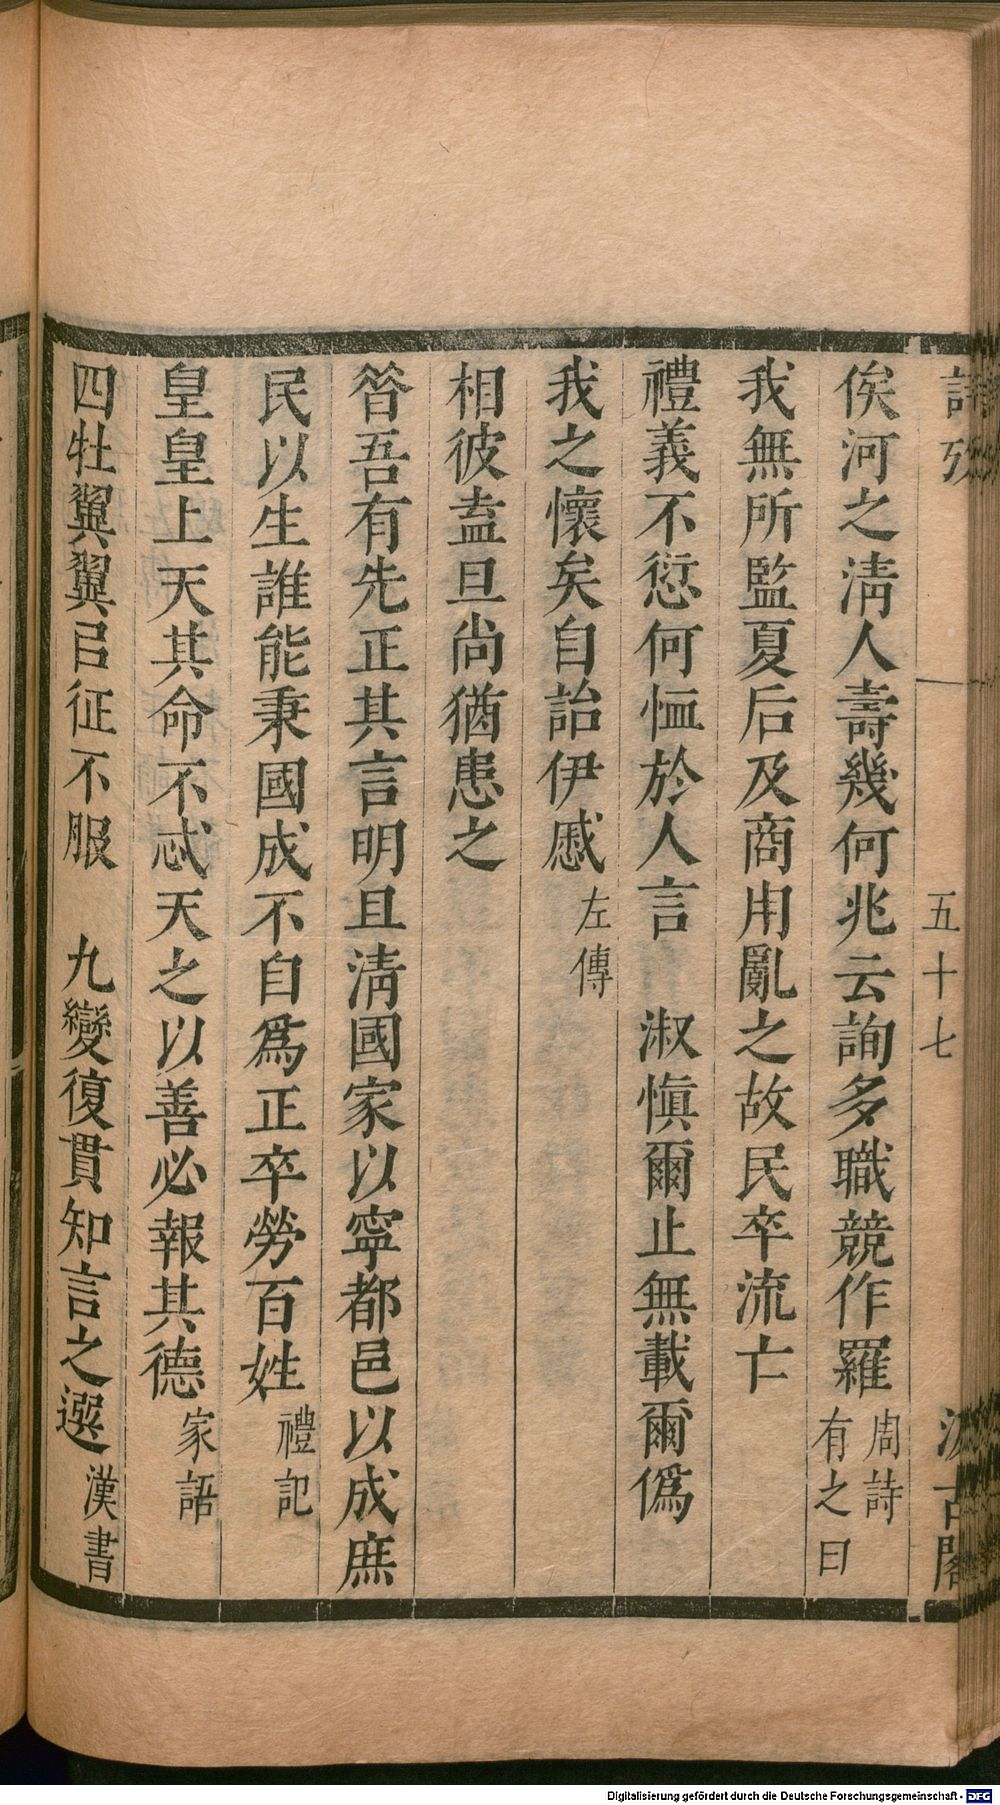 詩攷
五十七
汲古閣
俟河之淸人壽幾何兆云詢多職競作羅周詩有之曰
我無所監夏后及商用亂之故民卒流亡
禮義不愆何恤於人言　淑愼爾止無載爾僞
我之懷矣自詒伊慼左傳
相彼盍旦尚猶患之
昝吾有先正其言明且淸國家以寧都邑以成庶
民以生誰能秉國成不自爲正卒勞百姓禮記
皇皇上天其命不忒天之以善必報其德家語
四牡翼翼㠯征不服　九變復貫知言之選漢書
Digitalisierung gefördert durch die Deutsche Forschungsgemeinschaft - DFG